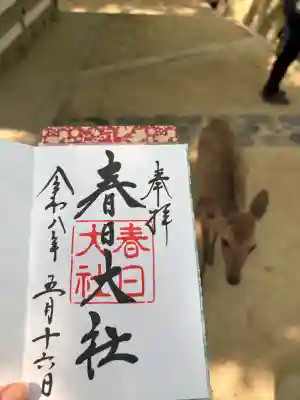 奉拝
春日大社
春日
大社
令和八年
五月十六日